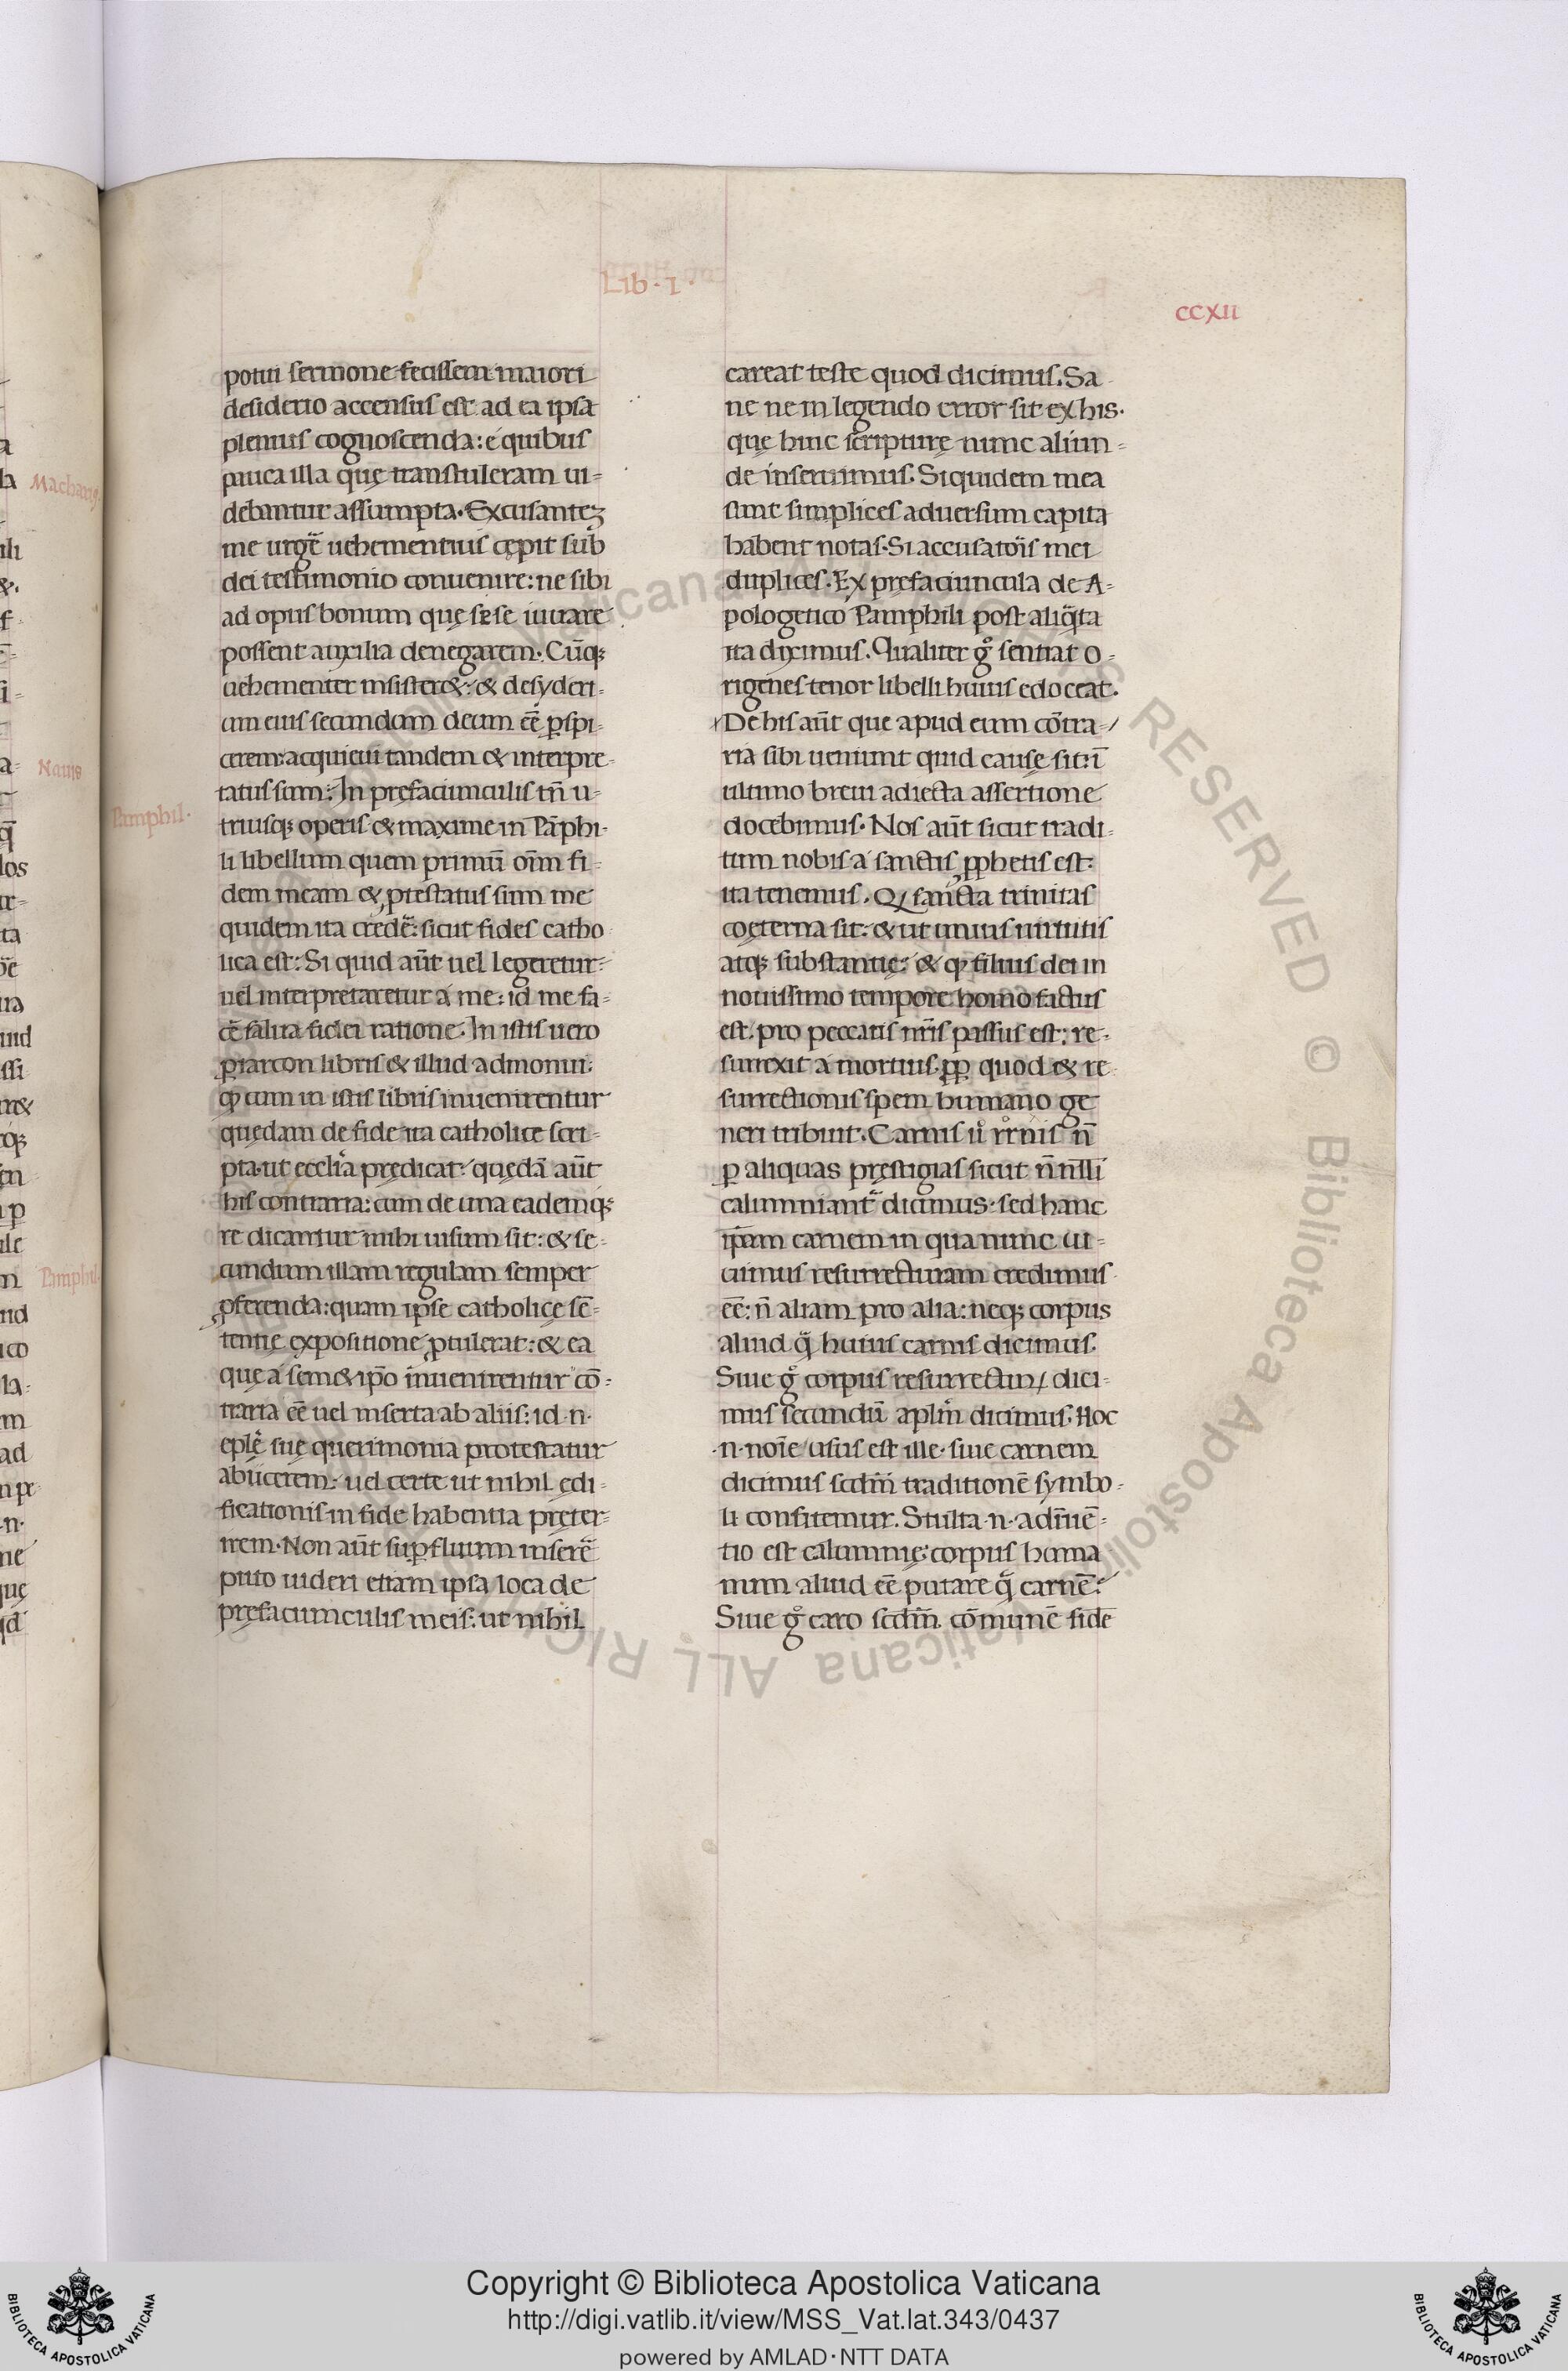 Lib · I ·
ccxii
potui sermone fecissem maiori
desiderio accensus est ad ea ipsa
plenius cognoscenda: e quibus
pauca illa quę transtuleram ui-
debantur assumpta. Excusantez
me urgē uehementius cępit sub
dei testimonio conuenire: ne sibi
ad opus bonum quę se se iuuare
possent auxilia denegarem. Cūq;
uehementer insister&: & desyderi-
um eius secundum deum eē ꝑspi-
cerem: acquieui tandem & interpre-
tatus sum. In pręfaciunculis tn̄ u-
Pamphil.
triusq; operis & maxime in Pāphi-
li libellum quem primū om̄m fi-
dem meam & ꝓtestatus sum me
quidem ita credē: sicut fides catho
lica est: Si quid aūt uel legeretur
uel interpretaretur a me: id me fa-
cē salua fidei ratione. In istis uero
ꝑiarcon libris & illud admonui:
ꝙ cum in istis libris inuenirentur
quędam de fide ita catholice scri-
pta ut ecclīa prędicat: quędā aūt
his contraria: cum de una eademq;
re dicantur mihi uisum sit: & se-
cundum illam regulam semper
ꝓferenda: quam ipse catholicę sē-
tentię expositione ꝓtulerat: & ea
quę a sem&ip̄o inuenirentur cō-
traria eē uel inserta ab aliis: id·n·
eplę suę querimonia protestatur
abiicerem: uel certe ut nihil ędi-
ficationis in fide habentia pręter-
irem. Non aūt suꝑfluum inserē
puto uideri etiam ipsa loca de
pręfaciunculis meis: ut nihil
careat teste quod dicimus. Sa
ne ne in legendo error sit ex his
quę huic scripturę nunc aliun-
de inseruimus. Siquidem mea
sunt simplices aduersum capita
habent notas. Si accusatoris mei
duplices. Ex pręfaciuncula de A-
pologetico Pamphili post aliq̄ta
ita diximus. Qualiter gͦ sentiat O-
rigenes tenor libelli huius edoceat.
De his aūt que apud eum cōtra-
ria sibi ueniunt quid causę sit: ī
ultimo breui adiecta assertione
docebimus. Nos aūt sicut tradi-
tum nobis a sanctis ꝓphetis est:
ita tenemus. Qꝫ sancta trinitas
coęterna sit: & ut unius uirtutis
atq; substantię: & ꝙ filius dei in
nouissimo tempore homo factus
est. pro peccatis nr̄is passus est: re-
surrexit a mortuis. ꝓp quod & re
surrectionis spem humano ge
neri tribuit. Carnis uͦ rr̄nis n̄
ꝑ aliquas pręstigias sicut n̄nll̄i
calumniant̄ dicimus. sed hanc
ip̄am carnem in qua nunc ui-
uimus resurrecturam credimus
eē: n̄ aliam pro alia: neq; corpus
aliud q̄ huius carnis dicimus.
Siue gͦ corpus resurrectur̄ dici-
mus secundū aplm̄ dicimus. Hoc
·n· noīe usus est ille. siue carnem
dicimus scdm̄ traditionē symbo-
li confitemur. Stulta·n· adīuē-
tio est calumnię: corpus huma
num aliud eē putare q̄ carnē.
Siue gͦ caro scdm̄. cōmunē fidē
Macharig
Nauis
Pamphil.
Copyright © Biblioteca Apostolica Vaticana
http://digi.vatlib.it/view/MSS_Vat.lat.343/0437
powered by AMLAD·NTT DATA
BIBLIOTECA APOSTOLICA VATICANA
BIBLIOTECA APOSTOLICA VATICANA